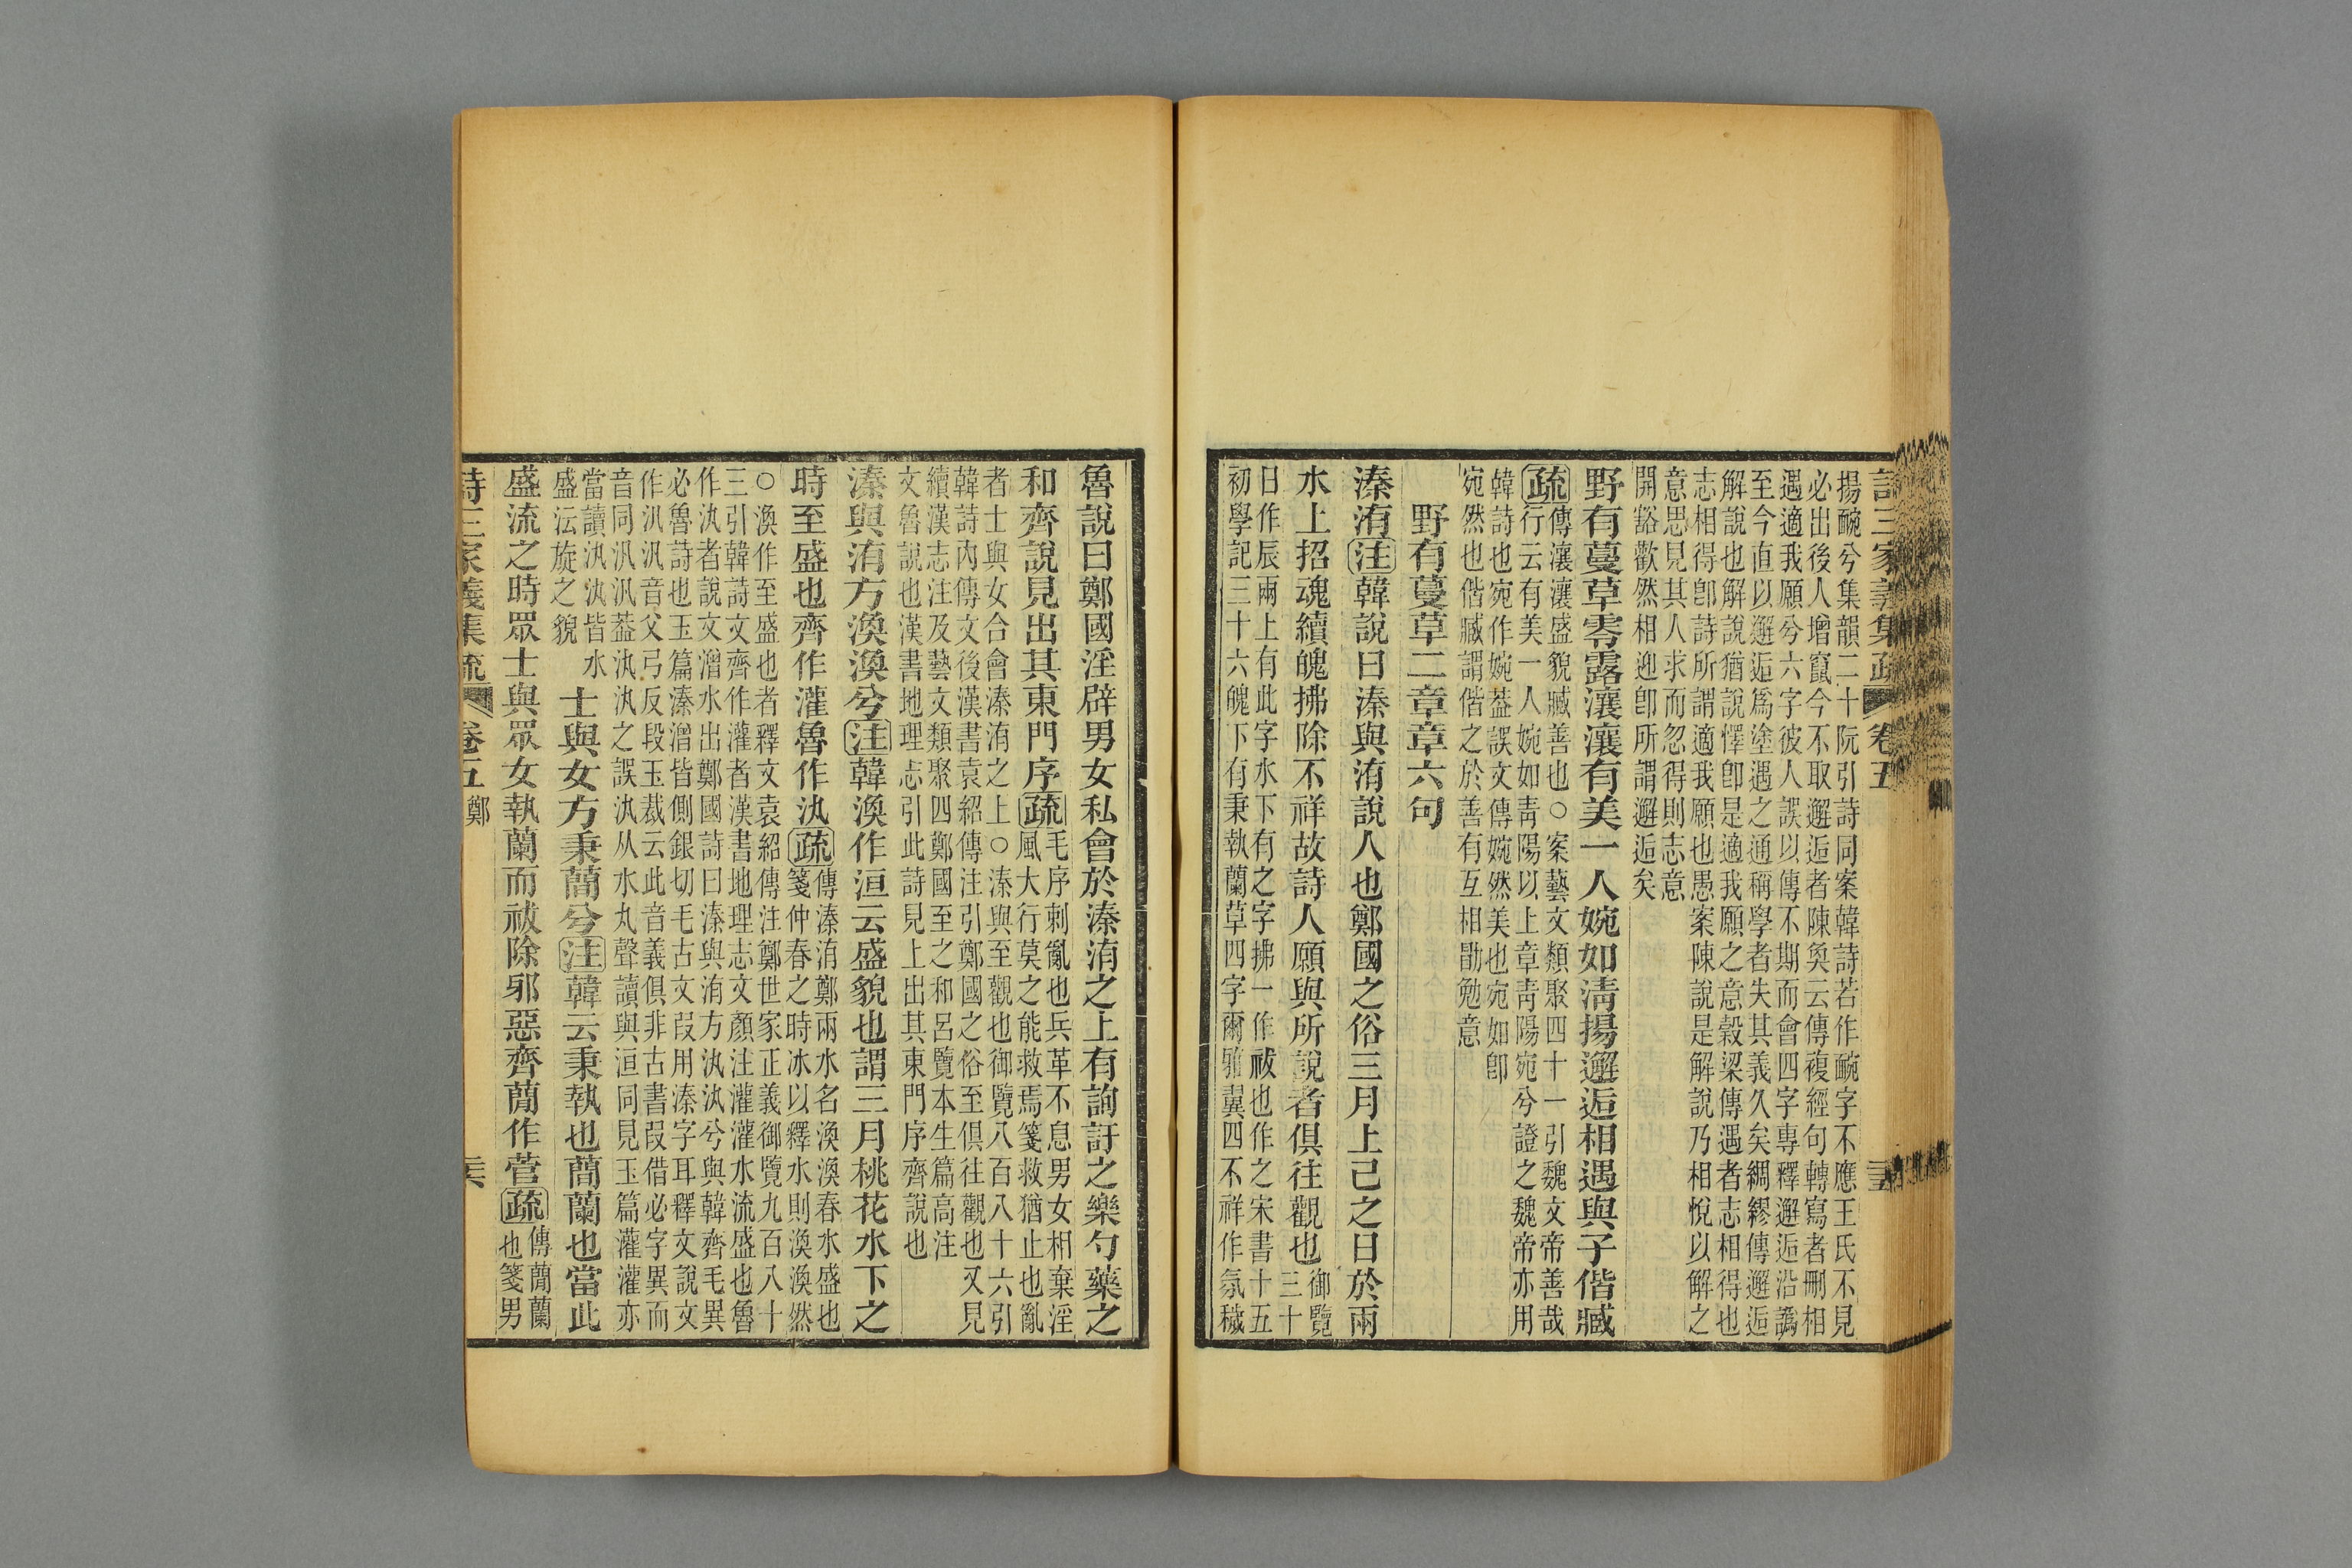 詩三家義集疏 卷五
揚畹兮集韻二十阮引詩同案韓詩若作畹字不應王氏不見
必出後人增竄今不取邂逅者陳奐云傳複經句轉寫者刪相
遇適我願兮六字彼人誤以傳不期而會四字專釋邂逅沿譌
至今直以邂逅爲塗遇之通稱學者失其義久矣綢繆傳邂逅
解說也解說猶說懌卽是適我願之意穀梁傳遇者志相得也
志相得卽詩所謂適我願也愚案陳說是解說乃相悅以解之
意思見其人求而忽得則志意
開豁歡然相迎卽所謂邂逅矣
野有蔓草零露瀼瀼有美一人婉如清揚邂逅相遇與子偕臧
疏傳瀼瀼盛貌臧善也○案藝文類聚四十一引魏文帝善哉
行云有美一人婉如靑陽以上章靑陽宛兮證之魏帝亦用
韓詩也宛作婉葢誤文傳婉然美也宛如卽
宛然也偕臧謂偕之於善有互相勖勉意
野有蔓草二章章六句
溱洧注韓說曰溱與洧說人也鄭國之俗三月上巳之日於兩
水上招魂續魄拂除不祥故詩人願與所說者俱往觀也御覽
三十
日作辰兩上有此字水下有之字拂一作祓也作之宋書十五
初學記三十六魄下有秉執蘭草四字爾雅翼四不祥作氛穢
魯說曰鄭國淫辟男女私會於溱洧之上有詢訏之樂勺藥之
和齊說見出其東門序疏毛序刺亂也兵革不息男女相棄淫
風大行莫之能救焉箋救猶止也亂
者士與女合會溱洧之上○溱與至觀也御覽八百八十六引
韓詩內傳文後漢書袁紹傳注引鄭國之俗至俱往觀也又見
續漢志注及藝文類聚四鄭國至之和呂覽本生篇高注
文魯說也漢書地理志引此詩見上出其東門序齊說也
溱與洧方渙渙兮注韓渙作洹云盛貌也謂三月桃花水下之
時至盛也齊作灌魯作汍疏傳溱洧鄭兩水名渙渙春水盛也
箋仲春之時冰以釋水則渙渙然
○渙作至盛也者釋文袁紹傳注鄭世家正義御覽九百八十
三引韓詩文齊作灌者漢書地理志文顏注灌灌水流盛也魯
作汍者說文潧水出鄭國詩曰溱與洧方汍汍兮與韓齊毛異
必魯詩也玉篇溱潧皆側銀切毛古文叚用溱字耳釋文說文
作汎汎音父弓反段玉裁云此音義俱非古書叚借必字異而
音同汎汎葢汍汍之誤汍从水丸聲讀與洹同見玉篇灌灌亦
當讀汍汍皆水
盛沄旋之貌
士與女方秉蕑兮注韓云秉執也蕑蘭也當此
盛流之時眾士與眾女執蘭而祓除邪惡齊蕑作菅疏傳蕑蘭
也箋男
詩三家義集疏 卷五 鄭